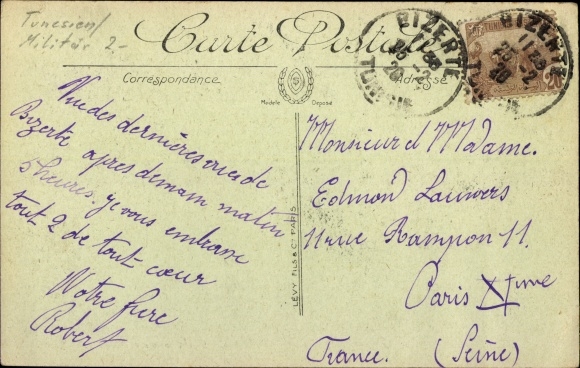 Tunesien/
Militär 2-
Carte Postale
Correspondance
Adresse
Modèle Déposé
BIZERTE
BIZERTE
20
Vue des dernières vues de
Bizerte apres demain matin
5 heures. je vous embrasse
tout 2 de tout cœur
Votre frere
Robert
LÉVY FILS & Cie PARIS
Monsieur et Madame.
Edmond Lauwers
11 rue Rampon 11.
Paris XIme
France. (Seine)